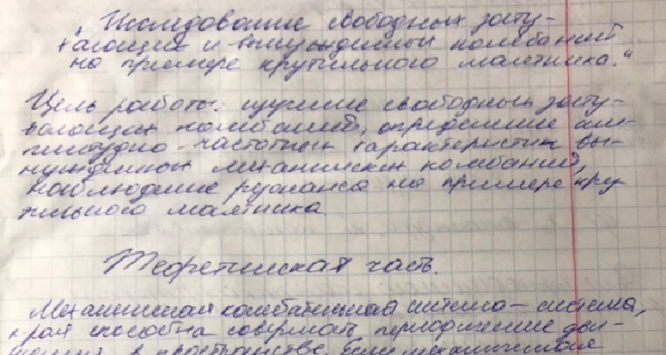 "Исследование свободных зату-
хающих и вынужденных колебаний
на примере крутильного маятника."
Цель работы: изучение свободных зату-
хающих колебаний, определение ам-
плитудно-частотных характеристик вы-
нужденных механических колебаний,
наблюдение резонанса на примере кру
тильного маятника
Теоретическая часть.
Механическая колебательная система – система,
к-рая способна совершать периодические дви-
жения в пространстве. Если механическая